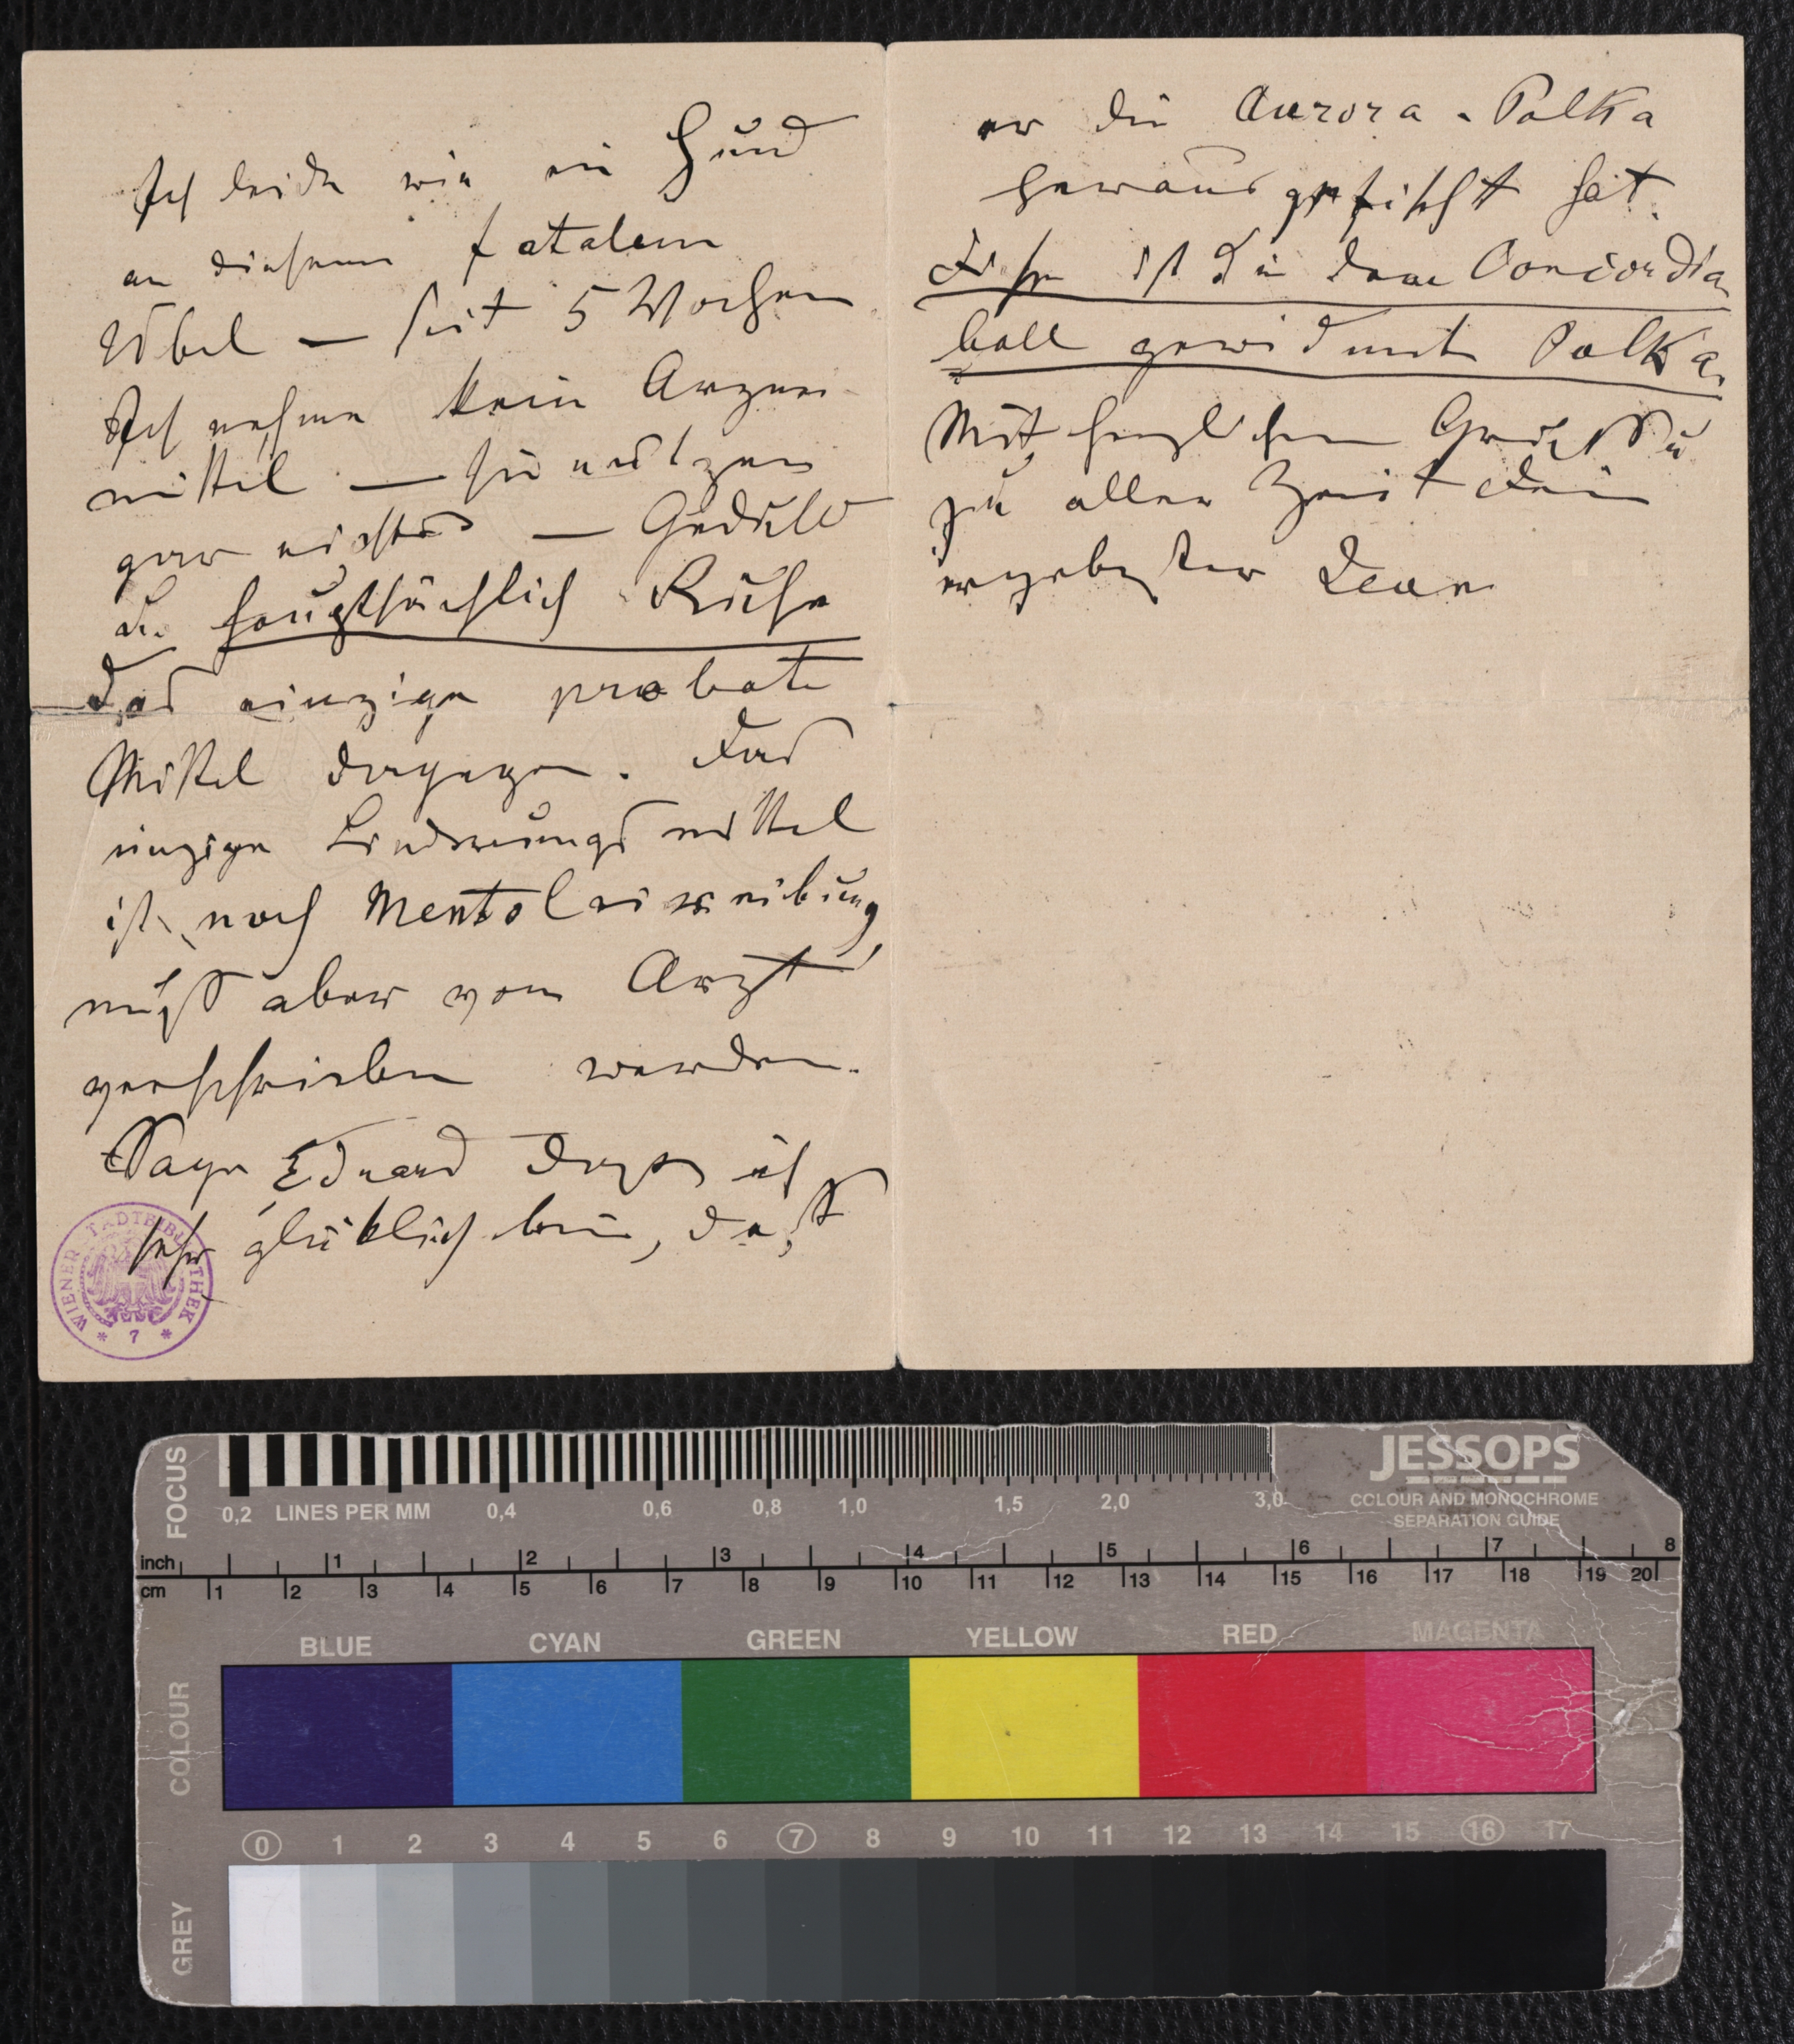 Ich leide wie ein Hund
an diesem fatalem
Übel — seit 5 Wochen
Ich nehme kein Arznei
mittel — sie nützen
gar nichts — Geduld
u. hauptsächlich Ruhe
das einzige probate
Mittel dagegen. Das
einzige Linderungsmittel
ist noch Mentoleinreibung,
muß aber vom Arzt
verschrieben werden.
Sage Eduard daß ich
sehr glücklich bin, daß
WIENER STADTBIBLIOTHEK
* 7 *
er die Aurora-Polka
herausgefischt hat.
Diese ist die dem Concordia
ball gewidmete Polka.
Mit herzlichem Gruß
zu aller Zeit Dein
ergebenster Jean
FOCUS
0,2 LINES PER MM 0,4 0,6 0,8 1,0 1,5 2,0 3,0
JESSOPS
COLOUR AND MONOCHROME
SEPARATION GUIDE
inch 1 2 3 4 5 6 7 8
cm 1 2 3 4 5 6 7 8 9 10 11 12 13 14 15 16 17 18 19 20
COLOUR
BLUE CYAN GREEN YELLOW RED MAGENTA
0 1 2 3 4 5 6 7 8 9 10 11 12 13 14 15 16 17
GREY